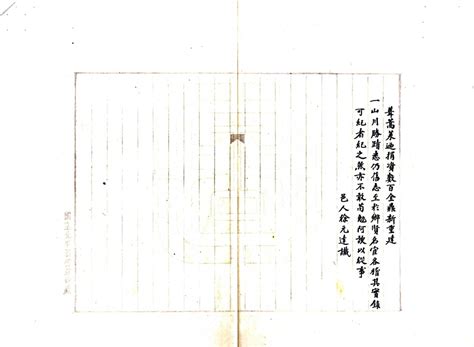 蒿萊迺捐資數百金鼎新重建
一山川勝蹟悉仍舊志至於鄉賢名宦各循其實錄
可紀者紀之無亦不敢苟勉何敢以從事
邑人徐元達識